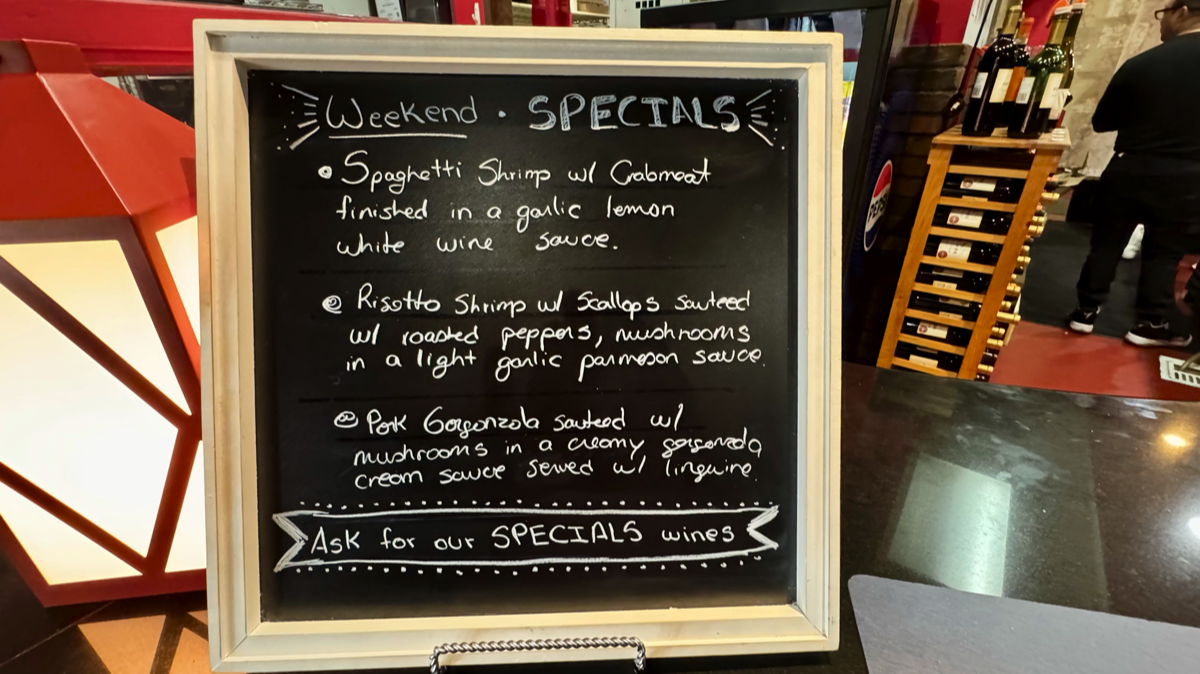 Weekend · SPECIALS
• Spaghetti Shrimp w/ Crabmeat
finished in a garlic lemon
white wine sauce.
• Risotto Shrimp w/ Scallops sauteed
w/ roasted peppers, mushrooms
in a light garlic parmesan sauce.
• Pork Gorgonzola sauteed w/
mushrooms in a creamy gorgonzola
cream sauce served w/ linguine.
Ask for our SPECIALS wines
PEPSI